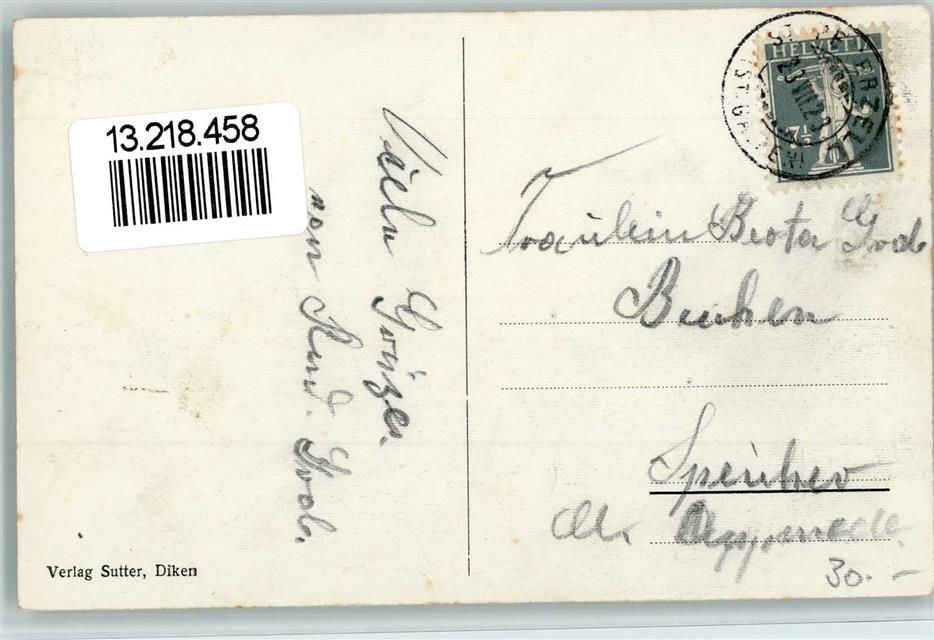 13.218.458
Viele Grüze.
von Rud. Grob.
HELVETIA
7½
ST. PETERZELL
(ST. GALLEN)
Fräulein Berta Grob
Buchen
Speicher
Ct. Appenzell
30.-
Verlag Sutter, Diken